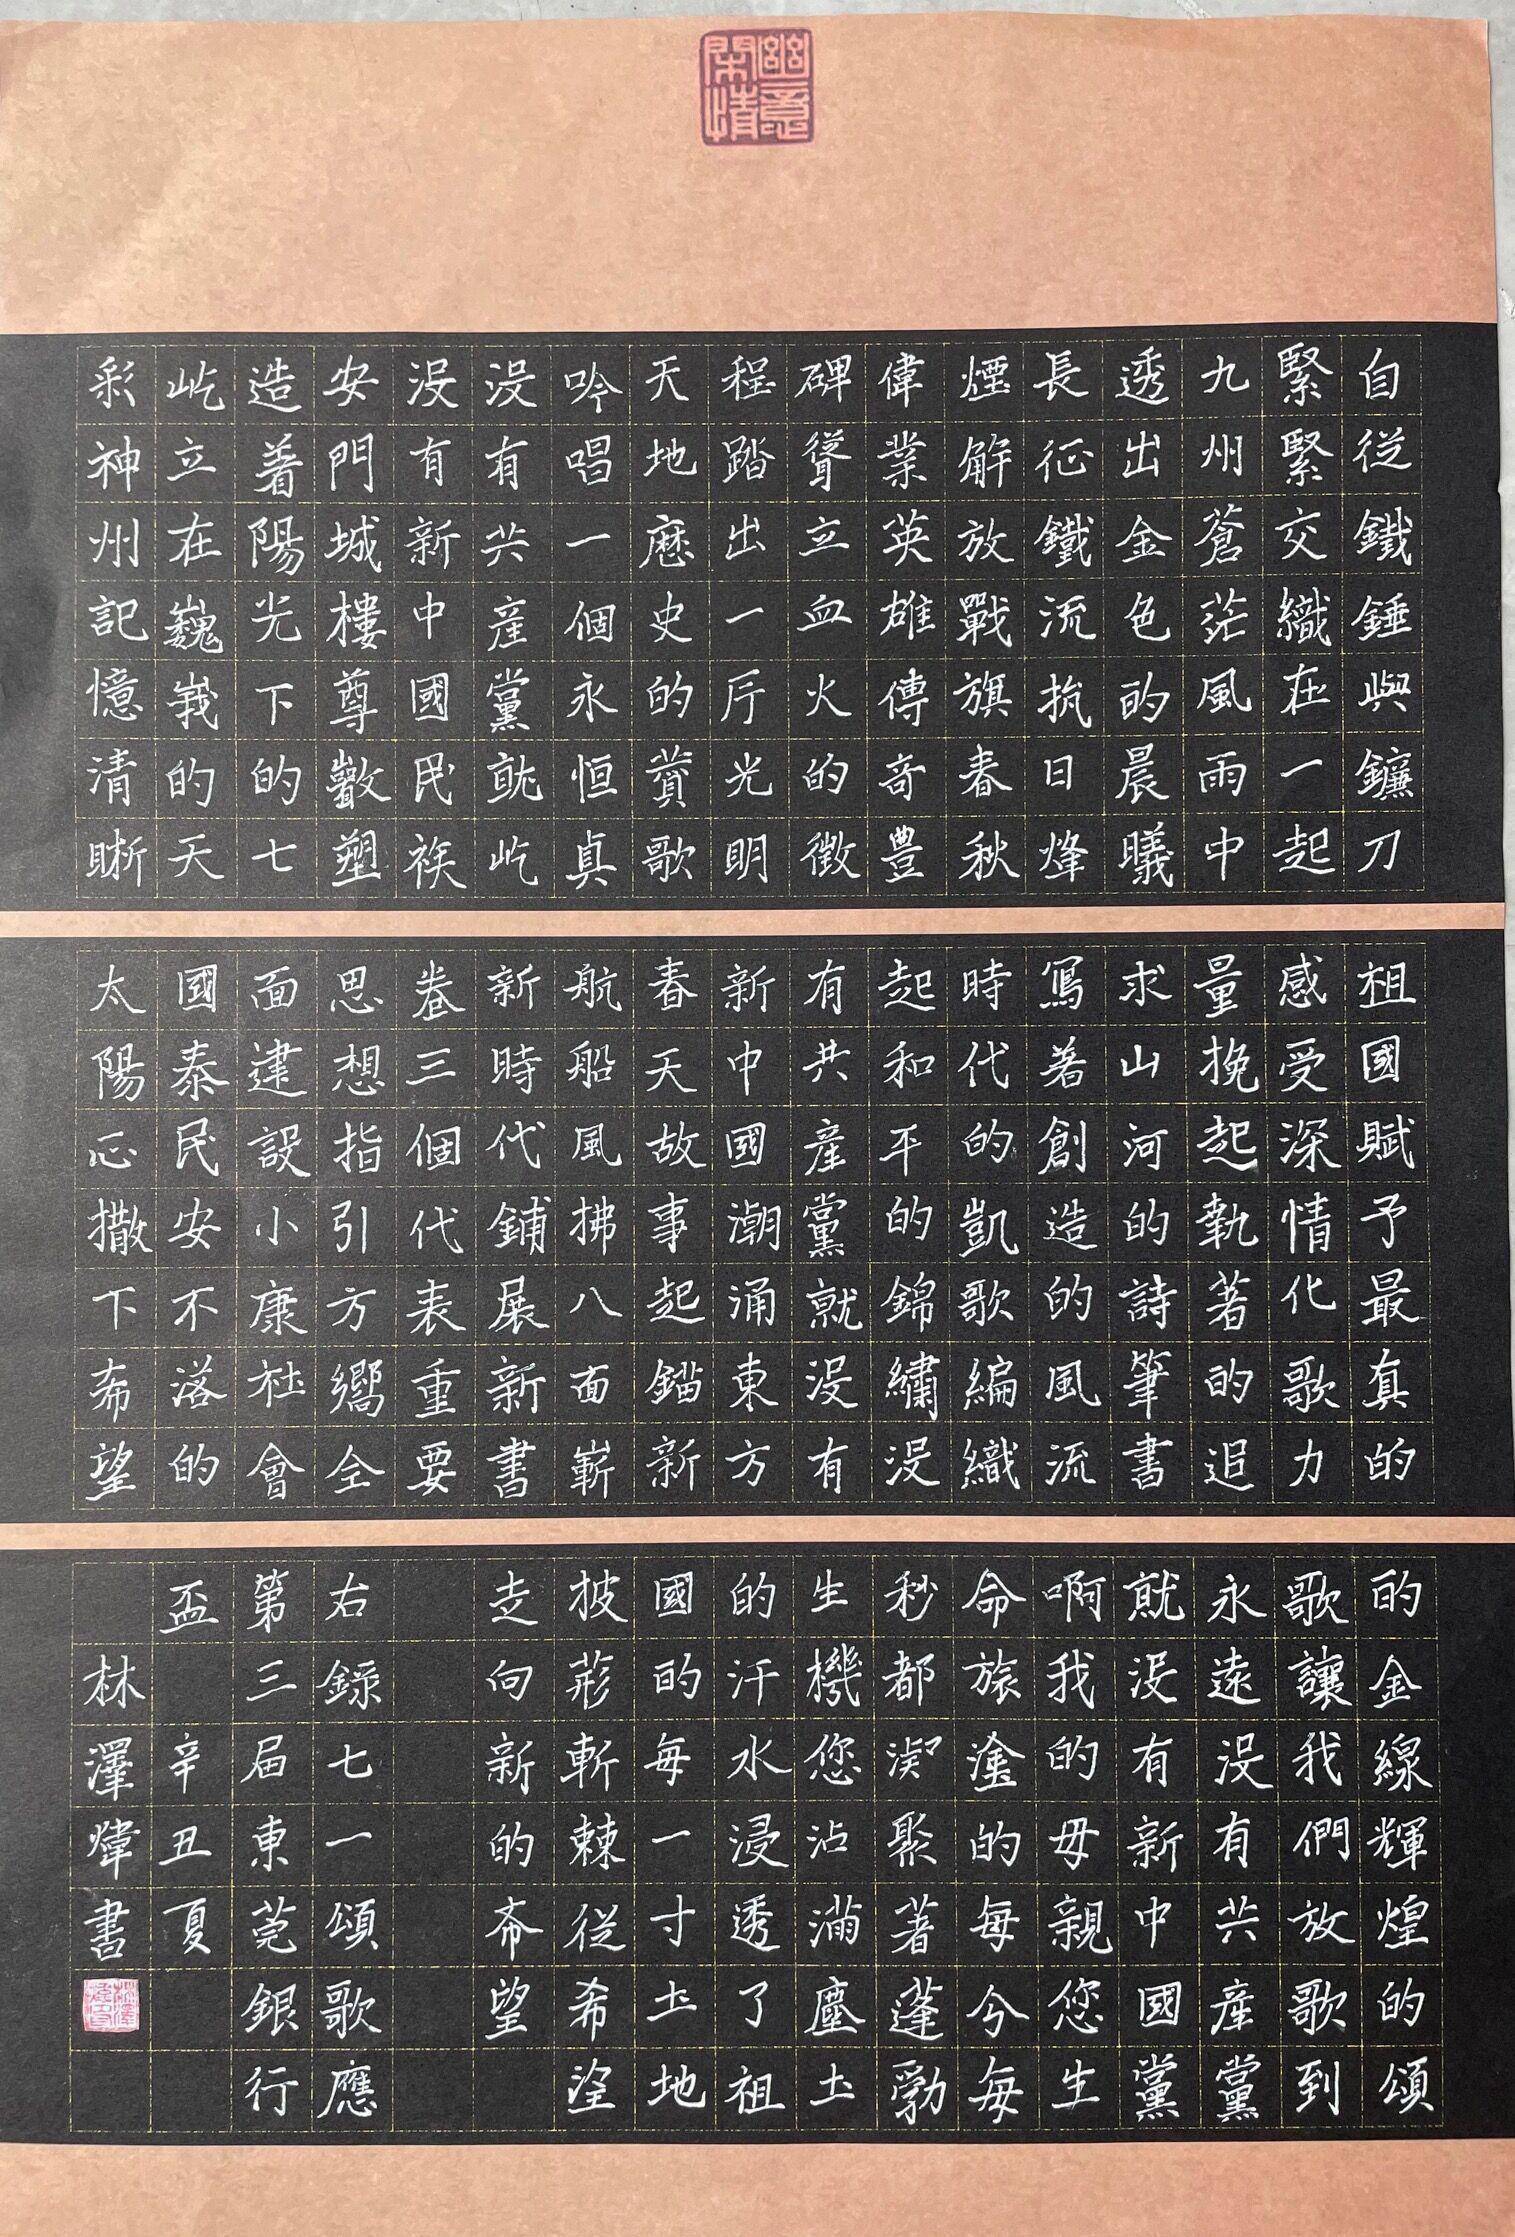 幽意閑情
自從鐵錘與鐮刀
緊緊交織在一起
九州蒼茫風雨中
透出金色的晨曦
長征鐵流抗日烽
煙解放戰旗春秋
偉業英雄傳奇豊
碑聳立血火的徵
程踏出一斤光明
天地歷史的贊歌
吟唱一個永恒真
没有共產黨就屹
没有新中國民族
安門城樓尊嚴塑
造着陽光下的七
屹立在巍峩的天
彩神州記憶清晰
祖國賦予最真的
感受深情化歌力
量挽起執著的追
求山河的詩筆書
寫著創造的風流
時代的凱歌編織
起和平的錦繡没
有共產黨就没有
新中國潮涌東方
春天故事起錨新
航船風拂八面嶄
新時代鋪展新書
卷三個代表重要
思想指引方嚮全
面建設小康社會
國泰民安不落的
太陽正撒下希望
的金線輝煌的頌
歌讓我們放歌到
永遠没有共產黨
就没有新中國黨
啊我的母親您生
命旅途的每今每
秒都凝聚著蓬勃
生機您沾滿塵土
的汗水浸透了祖
國的每一寸土地
披荊斬棘從希望
走向新的希望
右錄七一頌歌應
第三届東莞銀行
盃 辛丑夏
林澤煒書